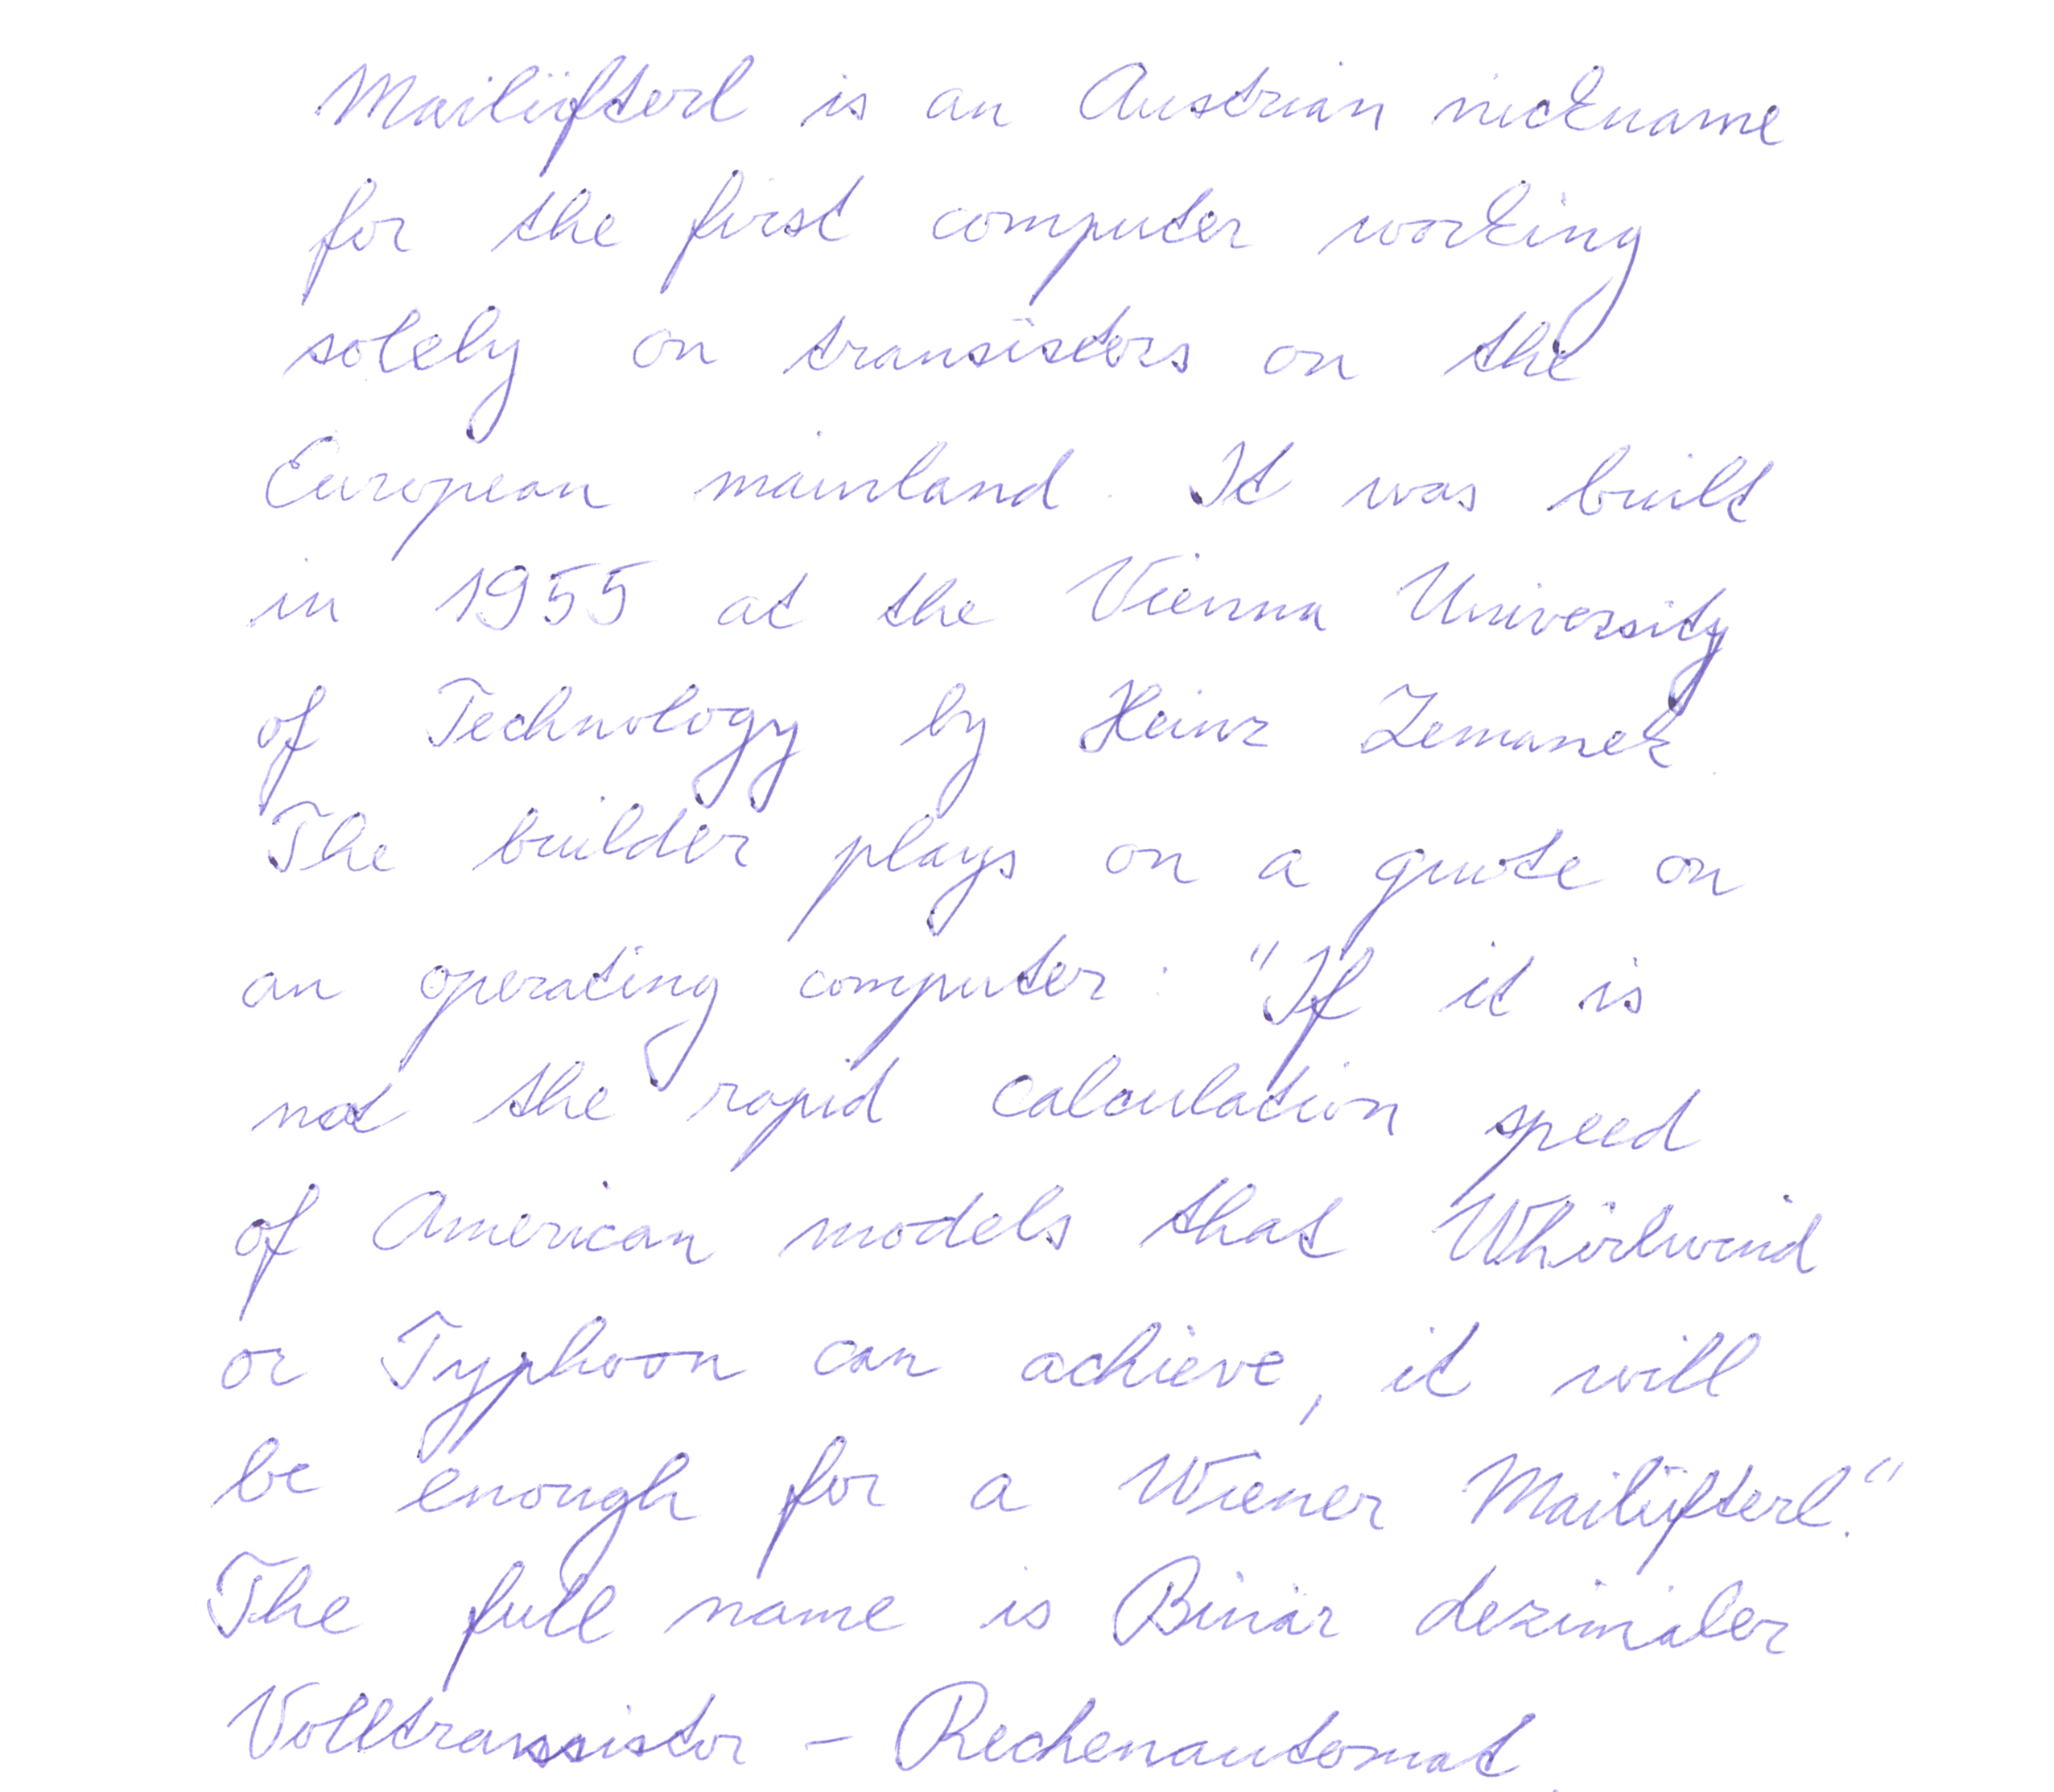 Mailüfterl is an Austrian nickname
for the first computer working
solely on transistors on the
European mainland. It was built
in 1955 at the Vienna University
of Technology by Heinz Zemanek.
The builder plays on a quote on
an operating computer: "If it is
not the rapid calculation speed
of American models that Whirlwind
or Typhoon can achieve, it will
be enough for a Wiener Mailüfterl."
The full name is Binär dezimaler
Volltransistor - Rechenautomat.